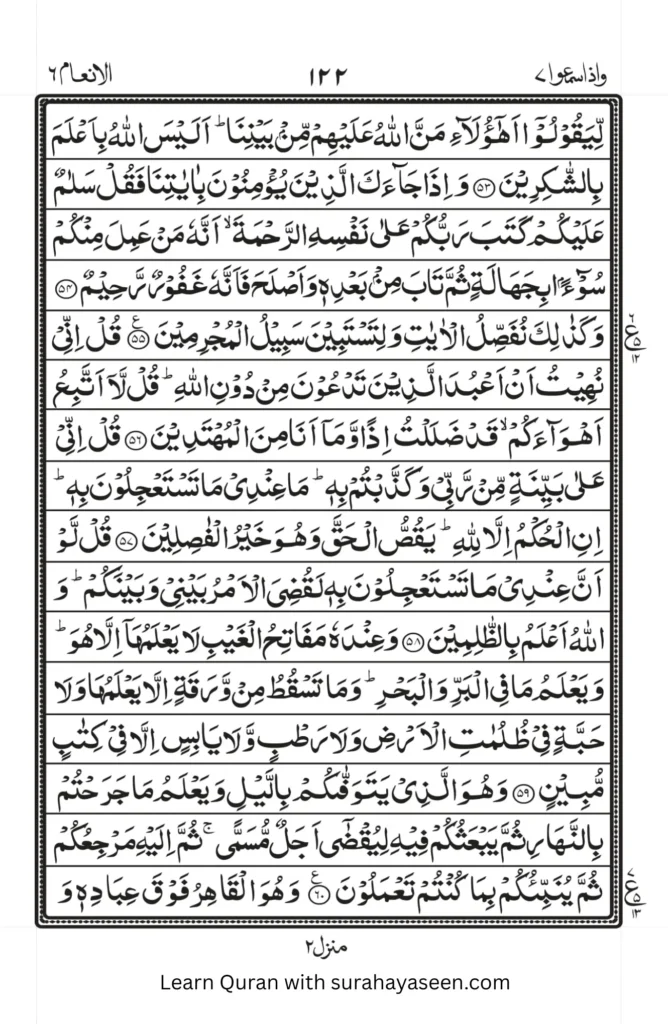 واذاسمعوا٧ ١٢٢ الانعام٦
لِّيَقُوۡلُوۡۤا اَهٰٓؤُلَآءِ مَنَّ اللّٰهُ عَلَيۡهِمۡ مِّنۡۢ بَيۡنِنَا ؕ اَلَيۡسَ اللّٰهُ بِاَعۡلَمَ
بِالشّٰكِرِيۡنَ ﴿۵۳﴾ وَاِذَا جَآءَكَ الَّذِيۡنَ يُؤۡمِنُوۡنَ بِاٰيٰتِنَا فَقُلۡ سَلٰمٌ
عَلَيۡكُمۡ كَتَبَ رَبُّكُمۡ عَلٰى نَفۡسِهِ الرَّحۡمَةَ ۙ اَنَّهٗ مَنۡ عَمِلَ مِنۡكُمۡ
سُوۡٓءًۢا بِجَهَالَةٍ ثُمَّ تَابَ مِنۡۢ بَعۡدِهٖ وَاَصۡلَحَ فَاَنَّهٗ غَفُوۡرٌ رَّحِيۡمٌ ﴿۵۴﴾
وَكَذٰلِكَ نُفَصِّلُ الۡاٰيٰتِ وَلِتَسۡتَبِيۡنَ سَبِيۡلُ الۡمُجۡرِمِيۡنَ ﴿۵۵﴾ قُلۡ اِنِّىۡ
نُهِيۡتُ اَنۡ اَعۡبُدَ الَّذِيۡنَ تَدۡعُوۡنَ مِنۡ دُوۡنِ اللّٰهِ ؕ قُلْ لَّاۤ اَتَّبِعُ
اَهۡوَآءَكُمۡ ۙ قَدۡ ضَلَلۡتُ اِذًا وَّمَاۤ اَنَا مِنَ الۡمُهۡتَدِيۡنَ ﴿۵۶﴾ قُلۡ اِنِّىۡ
عَلٰى بَيِّنَةٍ مِّنۡ رَّبِّىۡ وَكَذَّبۡتُمۡ بِهٖ ؕ مَا عِنۡدِىۡ مَا تَسۡتَعۡجِلُوۡنَ بِهٖ ؕ
اِنِ الۡحُكۡمُ اِلَّا لِلّٰهِ ؕ يَقُصُّ الۡحَقَّ وَهُوَ خَيۡرُ الۡفٰصِلِيۡنَ ﴿۵۷﴾ قُلْ لَّوۡ
اَنَّ عِنۡدِىۡ مَا تَسۡتَعۡجِلُوۡنَ بِهٖ لَقُضِىَ الۡاَمۡرُ بَيۡنِىۡ وَبَيۡنَكُمۡ ؕ وَ
اللّٰهُ اَعۡلَمُ بِالظّٰلِمِيۡنَ ﴿۵۸﴾ وَعِنۡدَهٗ مَفَاتِحُ الۡغَيۡبِ لَا يَعۡلَمُهَاۤ اِلَّا هُوَ ؕ
وَيَعۡلَمُ مَا فِى الۡبَرِّ وَالۡبَحۡرِ ؕ وَمَا تَسۡقُطُ مِنۡ وَّرَقَةٍ اِلَّا يَعۡلَمُهَا وَلَا
حَبَّةٍ فِىۡ ظُلُمٰتِ الۡاَرۡضِ وَلَا رَطۡبٍ وَّلَا يَابِسٍ اِلَّا فِىۡ كِتٰبٍ
مُّبِيۡنٍ ﴿۵۹﴾ وَهُوَ الَّذِىۡ يَتَوَفّٰٮكُمۡ بِالَّيۡلِ وَيَعۡلَمُ مَا جَرَحۡتُمۡ
بِالنَّهَارِ ثُمَّ يَبۡعَثُكُمۡ فِيۡهِ لِيُقۡضٰٓى اَجَلٌ مُّسَمًّى ۚ ثُمَّ اِلَيۡهِ مَرۡجِعُكُمۡ
ثُمَّ يُنَبِّئُكُمۡ بِمَا كُنۡتُمۡ تَعۡمَلُوۡنَ ﴿۶۰﴾ وَهُوَ الۡقَاهِرُ فَوۡقَ عِبَادِهٖ وَ
ع ٦ ٥ ١٢
ع ٧ ٥ ١٣
منزل٢
Learn Quran with surahayaseen.com